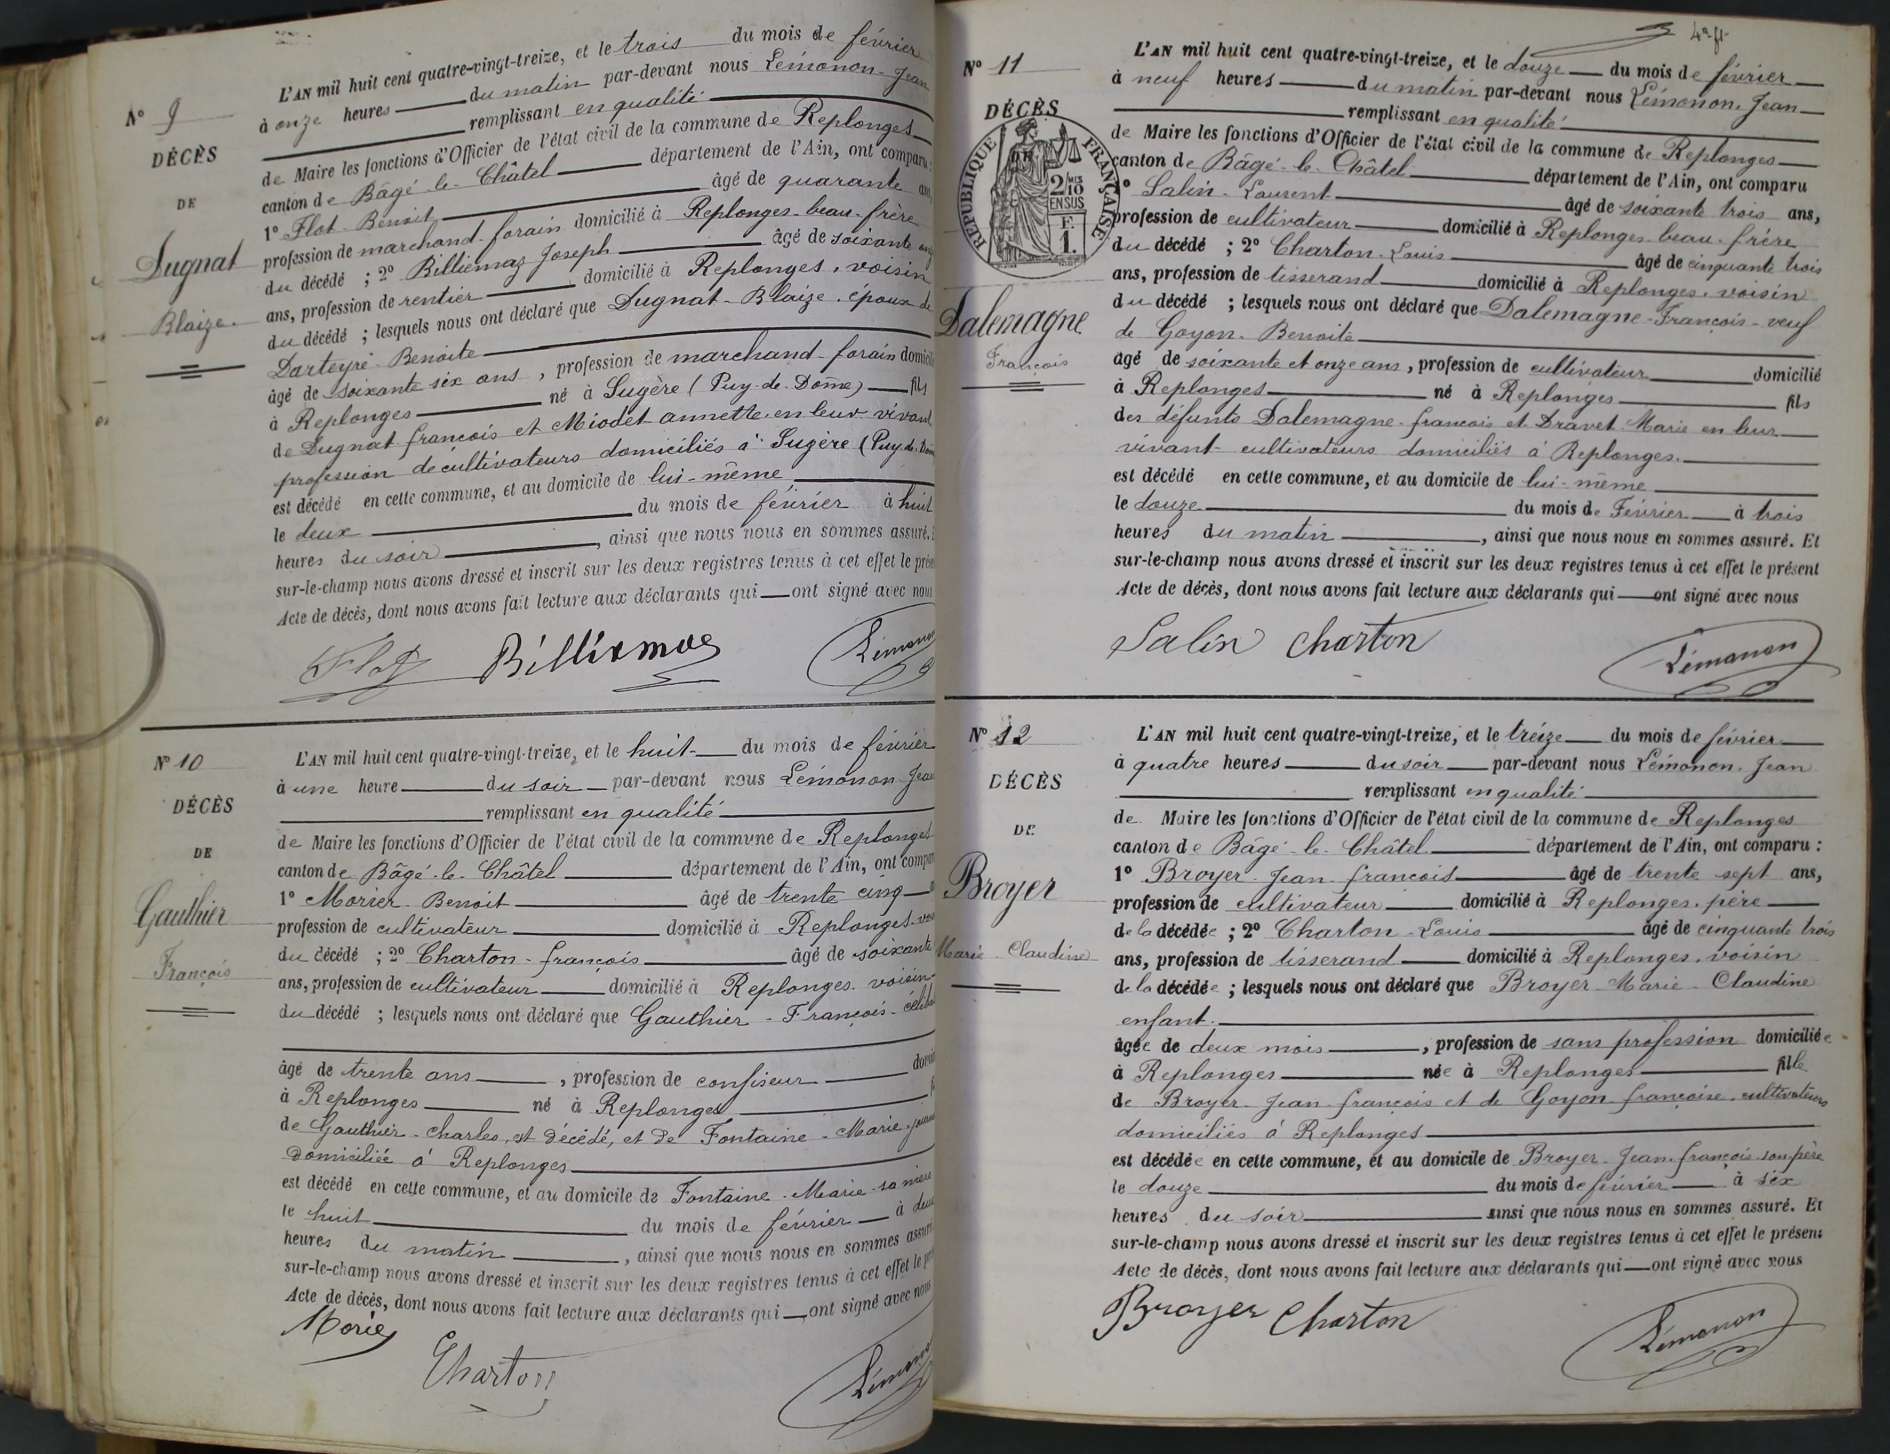 N° 9
DÉCÈS
DE
Dugnat
Blaize.
L'AN mil huit cent quatre-vingt-treize, et le trois du mois de février
à onze heures du matin par-devant nous Lémonon Jean
remplissant en qualité
de Maire les fonctions d'Officier de l'état civil de la commune de Replonges
canton de Bâgé-le-Châtel département de l'Ain, ont comparu :
1° Flot Benoit âgé de quarante ans,
profession de marchand forain domicilié à Replonges beau-frère
du décédé ; 2° Billiemaz Joseph âgé de soixante
ans, profession de rentier domicilié à Replonges, voisin
du décédé ; lesquels nous ont déclaré que Dugnat Blaize, époux de
Darteyre Benoite
âgé de soixante six ans, profession de marchand forain domicilié
à Replonges né à Sugère (Puy-de-Dôme) fils
de Dugnat françois et Miodet annette en leur vivant
profession de cultivateurs domiciliés à Sugère (Puy-de-Dôme
est décédé en cette commune, et au domicile de lui-même
le deux du mois de février à huit
heures du soir, ainsi que nous nous en sommes assuré. Et
sur-le-champ nous avons dressé et inscrit sur les deux registres tenus à cet effet le présent
Acte de décès, dont nous avons fait lecture aux déclarants qui ont signé avec nous
Flot Billiemaz Lémonon
N° 10
DÉCÈS
DE
Gauthier
François
L'AN mil huit cent quatre-vingt-treize, et le huit du mois de février
à une heure du soir par-devant nous Lémonon Jean
remplissant en qualité
de Maire les fonctions d'Officier de l'état civil de la commune de Replonges
canton de Bâgé-le-Châtel département de l'Ain, ont comparu
1° Morier Benoit âgé de trente cinq
profession de cultivateur domicilié à Replonges
du décédé ; 2° Charton françois âgé de soixante
ans, profession de cultivateur domicilié à Replonges voisin
du décédé ; lesquels nous ont déclaré que Gauthier François
âgé de trente ans, profession de confiseur
à Replonges né à Replonges
de Gauthier Charles, est décédé, et de Fontaine Marie
domiciliée à Replonges
est décédé en cette commune, et au domicile de Fontaine Marie sa mère
le huit du mois de février à deux
heures du matin, ainsi que nous nous en sommes assuré
sur-le-champ nous avons dressé et inscrit sur les deux registres tenus à cet effet le
Acte de décès, dont nous avons fait lecture aux déclarants qui ont signé avec nous
Morier
Charton Lémonon
N° 11
DÉCÈS
RÉPUBLIQUE FRANÇAISE
2/10 EN SUS
F. 1.
Dalemagne
François
L'AN mil huit cent quatre-vingt-treize, et le douze du mois de février
à neuf heures du matin par-devant nous Lémonon Jean
remplissant en qualité
de Maire les fonctions d'Officier de l'état civil de la commune de Replonges
canton de Bâgé-le-Châtel département de l'Ain, ont comparu
1° Salin Laurent âgé de soixante trois ans,
profession de cultivateur domicilié à Replonges beau-frère
du décédé ; 2° Charton Louis âgé de cinquante trois
ans, profession de tisserand domicilié à Replonges, voisin
du décédé ; lesquels nous ont déclaré que Dalemagne François veuf
de Goyon Benoite
âgé de soixante et onze ans, profession de cultivateur domicilié
à Replonges né à Replonges fils
des défunts Dalemagne françois et Dravet Marie en leur
vivant cultivateurs domiciliés à Replonges.
est décédé en cette commune, et au domicile de lui-même
le douze du mois de Février à trois
heures du matin, ainsi que nous nous en sommes assuré. Et
sur-le-champ nous avons dressé et inscrit sur les deux registres tenus à cet effet le présent
Acte de décès, dont nous avons fait lecture aux déclarants qui ont signé avec nous
Salin Charton Lémonon
N° 12
DÉCÈS
DE
Broyer
Marie Claudine
L'AN mil huit cent quatre-vingt-treize, et le treize du mois de février
à quatre heures du soir par-devant nous Lémonon Jean
remplissant en qualité
de Maire les fonctions d'Officier de l'état civil de la commune de Replonges
canton de Bâgé-le-Châtel département de l'Ain, ont comparu :
1° Broyer Jean françois âgé de trente sept ans,
profession de cultivateur domicilié à Replonges, père
de la décédée ; 2° Charton Louis âgé de cinquante trois
ans, profession de tisserand domicilié à Replonges, voisin
de la décédée ; lesquels nous ont déclaré que Broyer Marie Claudine
enfant.
âgée de deux mois, profession de sans profession domiciliée
à Replonges née à Replonges fille
de Broyer Jean françois et de Goyon françoise, cultivateurs
domiciliés à Replonges
est décédée en cette commune, et au domicile de Broyer Jean françois son père
le douze du mois de février à six
heures du soir ainsi que nous nous en sommes assuré. Et
sur-le-champ nous avons dressé et inscrit sur les deux registres tenus à cet effet le présent
Acte de décès, dont nous avons fait lecture aux déclarants qui ont signé avec nous
Broyer Charton Lémonon